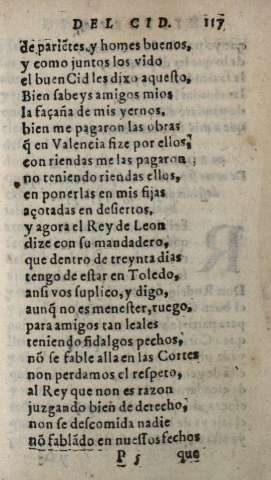 DEL CID. 117
de pariētes, y homes buenos,
y como juntos los vido
el buen Cid les dixo aquesto,
Bien sabeys amigos mios
la façaña de mis yernos,
bien me pagaron las obras
q̃ en Valencia fize por ellos,
con riendas me las pagaron ;
no teniendo riendas ellos,
en ponerlas en mis fijas
açotadas en desiertos,
y agora el Rey de Leon
dize con su mandadero,
que dentro de treynta dias
tengo de estar en Toledo,
ansi vos suplico, y digo,
aunq̃ no es menester, ruego,
para amigos tan leales
teniendo fidalgos pechos,
nõ se fable alla en las Cortes
non perdamos el respeto,
al Rey que non es razon
juzgando bien de derecho,
non se descomida nadie
nõ fablãdo en nuestos fechos
P 5 que